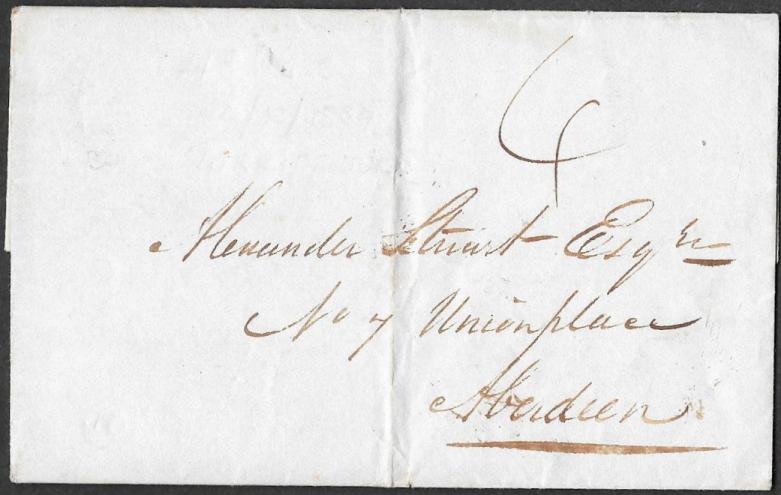 4
Alexander Stuart Esqre
No 7 Unionplace
Aberdeen